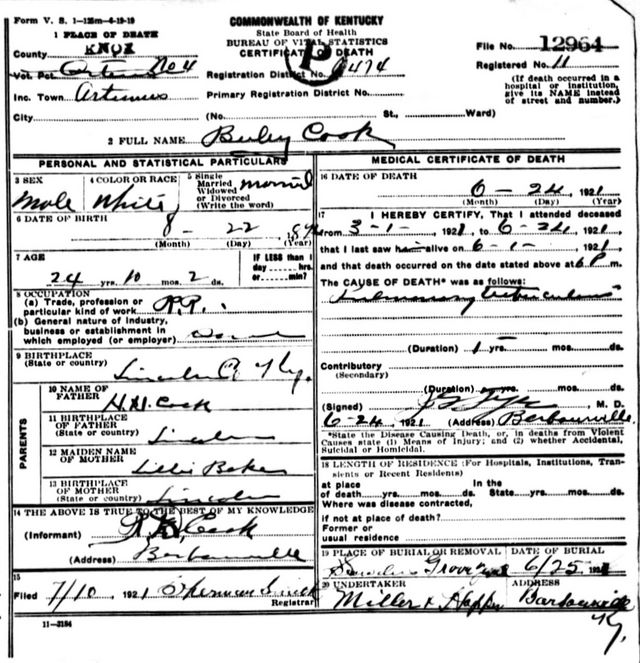 Form V. S. 1—125m—6-19-19
COMMONWEALTH OF KENTUCKY
State Board of Health
BUREAU OF VITAL STATISTICS
CERTIFICATE OF DEATH
1 PLACE OF DEATH
County KNOX
Vot. Pct. No 4
Inc. Town Artemus
City (No. St., Ward)
Registration District No. 6474
Primary Registration District No.
File No. 12964
Registered No. 11
(If death occurred in a
hospital or institution,
give its NAME instead
of street and number.)
2 FULL NAME Burley Cook
PERSONAL AND STATISTICAL PARTICULARS
3 SEX
Male
4 COLOR OR RACE
White
5 Single
Married
Widowed
or Divorced
(Write the word)
6 DATE OF BIRTH
8 - 22
(Month) (Day) (Year)
7 AGE
24 yrs. 10 mos. 2 ds.
IF LESS than 1
day ------ hrs.
or ------ min?
8 OCCUPATION
(a) Trade, profession or
particular kind of work R.R.
(b) General nature of industry,
business or establishment in
which employed (or employer)
9 BIRTHPLACE
(State or country) Lincoln Co Ky.
PARENTS
10 NAME OF
FATHER Cook
11 BIRTHPLACE
OF FATHER
(State or country) Lincoln
12 MAIDEN NAME
OF MOTHER Lillie Baker
13 BIRTHPLACE
OF MOTHER
(State or country) Lincoln
14 THE ABOVE IS TRUE TO THE BEST OF MY KNOWLEDGE
(Informant) Cook
(Address) Barbourville
15
Filed 7/10, 1921 Sherman
Registrar
11—3184
MEDICAL CERTIFICATE OF DEATH
16 DATE OF DEATH
6 - 24, 1921
(Month) (Day) (Year)
17 I HEREBY CERTIFY, That I attended deceased
from 3-1-, 1921, to 6-24, 1921,
that I last saw him alive on 6-1-, 1921,
and that death occurred on the date stated above at 6 P m.
The CAUSE OF DEATH* was as follows:
Pulmonary tuberculosis
(Duration) 1 yrs. mos. ds.
Contributory
(Secondary)
(Duration) yrs. mos. ds.
(Signed) M. D.
6-24, 1921 (Address) Barbourville
*State the Disease Causing Death, or, in deaths from Violent
Causes state (1) Means of Injury; and (2) whether Accidental,
Suicidal or Homicidal.
18 LENGTH OF RESIDENCE (For Hospitals, Institutions, Tran-
sients or Recent Residents)
at place In the
of death yrs. mos. ds. State yrs. mos. ds.
Where was disease contracted,
if not at place of death?
Former or
usual residence
19 PLACE OF BURIAL OR REMOVAL
Grove
DATE OF BURIAL
6/25 1921
20 UNDERTAKER
Miller &
ADDRESS
Barbourville
Ky.